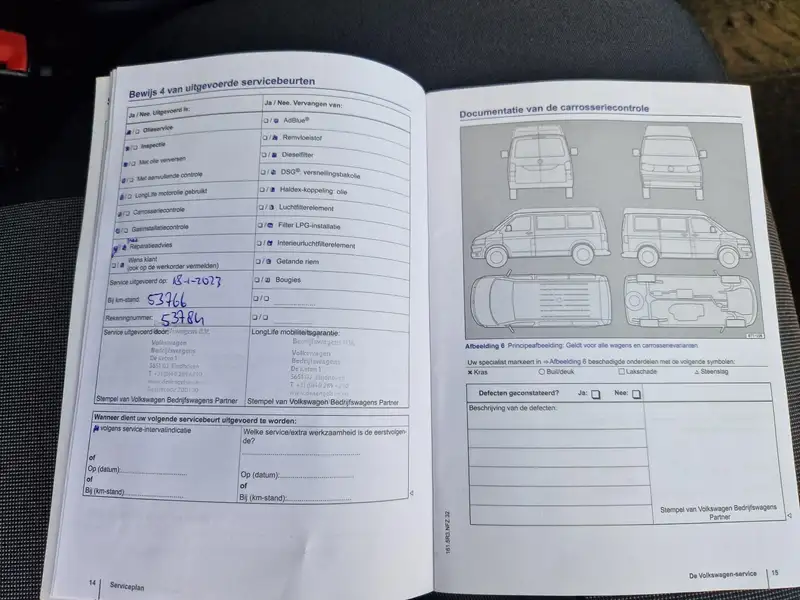 Bewijs 4 van uitgevoerde servicebeurten
Ja / Nee. Uitgevoerd is:
Ja / Nee. Vervangen van:
Olieservice
Inspectie
Met olie verversen
Met aanvullende controle
LongLife motorolie gebruikt
Carrosseriecontrole
Gasinstallatiecontrole
Reparatieadvies
Wens klant
(ook op de werkorder vermelden)
Service uitgevoerd op: 18-1-2023
Bij km-stand: 53766
Rekeningnummer: 53784
Service uitgevoerd door:
Volkswagen
Bedrijfswagens
Stempel van Volkswagen Bedrijfswagens Partner
/ AdBlue®
/ Remvloeistof
/ Dieselfilter
/ DSG®. versnellingsbakolie
/ Haldex-koppeling: olie
/ Luchtfilterelement
/ Filter LPG-installatie
/ Interieurluchtfilterelement
/ Getande riem
/ Bougies
/
/
LongLife mobiliteitsgarantie:
Volkswagen
Bedrijfswagens
Stempel van Volkswagen Bedrijfswagens Partner
Wanneer dient uw volgende servicebeurt uitgevoerd te worden:
volgens service-intervalindicatie
of
Op (datum):
of
Bij (km-stand)
Welke service/extra werkzaamheid is de eerstvolgen-
de?
Op (datum):
of
Bij (km-stand):
14 | Serviceplan
Documentatie van de carrosseriecontrole
Afbeelding 6 Principeafbeelding: Geldt voor alle wagens en carrosserievarianten.
Uw specialist markeert in ⇒Afbeelding 6 beschadigde onderdelen met de volgende symbolen:
× Kras
○ Buil/deuk
□ Lakschade
△ Steenslag
Defecten geconstateerd? Ja: Nee:
Beschrijving van de defecten:
Stempel van Volkswagen Bedrijfswagens
Partner
161.5R3.NFZ.32
De Volkswagen-service | 15